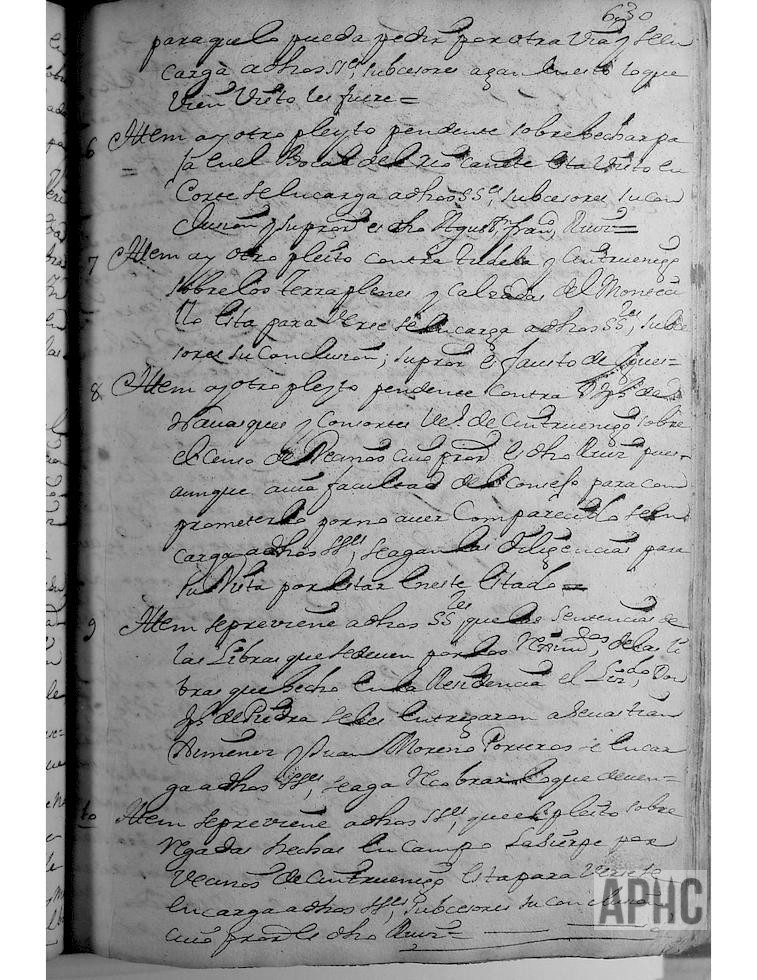 630
para que lo pueda pedir por otra Via, y se en
carga a dhos SSes, subcesores agan en esto lo que
vien Visto les fuere =
6 Ittem ay otro pleyto pendente sobre hechar pa
en el Bocal del Rio esta Visto en
Corte se encarga a dhos SSes, subcesores su con
clusion y su pror es dho Ruiz =
7 Ittem ay otro pleito contra tudela y Cintruenigo
sobre los terraplenes y Calzadas del Monteci
llo esta para Verse se encarga a dhos SSes, subce
sores su Conclusion; su pror es fausto de
8 Ittem ay otro pleyto pendente contra de
y Consortes Vez.s de Cintruenigo sobre
el Censo de Vecinos cuio pror es dho Ruiz pues
aunque avia facultad del Consejo para com
prometerlo por no aver Comparecido se en
carga a dhos SSes, se agan las diligencias para
su Vista por estar en este estado =
9 Ittem se previene a dhos SSes que las Sentencias de
las Libras que se deven por los de las li
bras que hecho en la Residencia el Lizdo Don
de Piedra se les entregaron a Sevastian
Ximenez y Juan Moreno Porteros se encar
ga a dhos SSes, se aga Recobrar lo que deven =
10 Ittem se previene a dhos SSes, que el pleito sobre
Regadas hechas en Campo La sierpe por
Vecinos de Cintruenigo esta para Verse se
encarga a dhos SSes, Subcesores su conclusion
cuio pror es dho Ruiz =
APHC